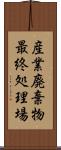 産業廃棄物
最終処理場